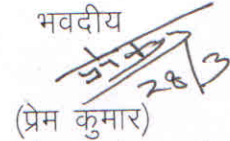 भवदीय
28/3
(प्रेम कुमार)